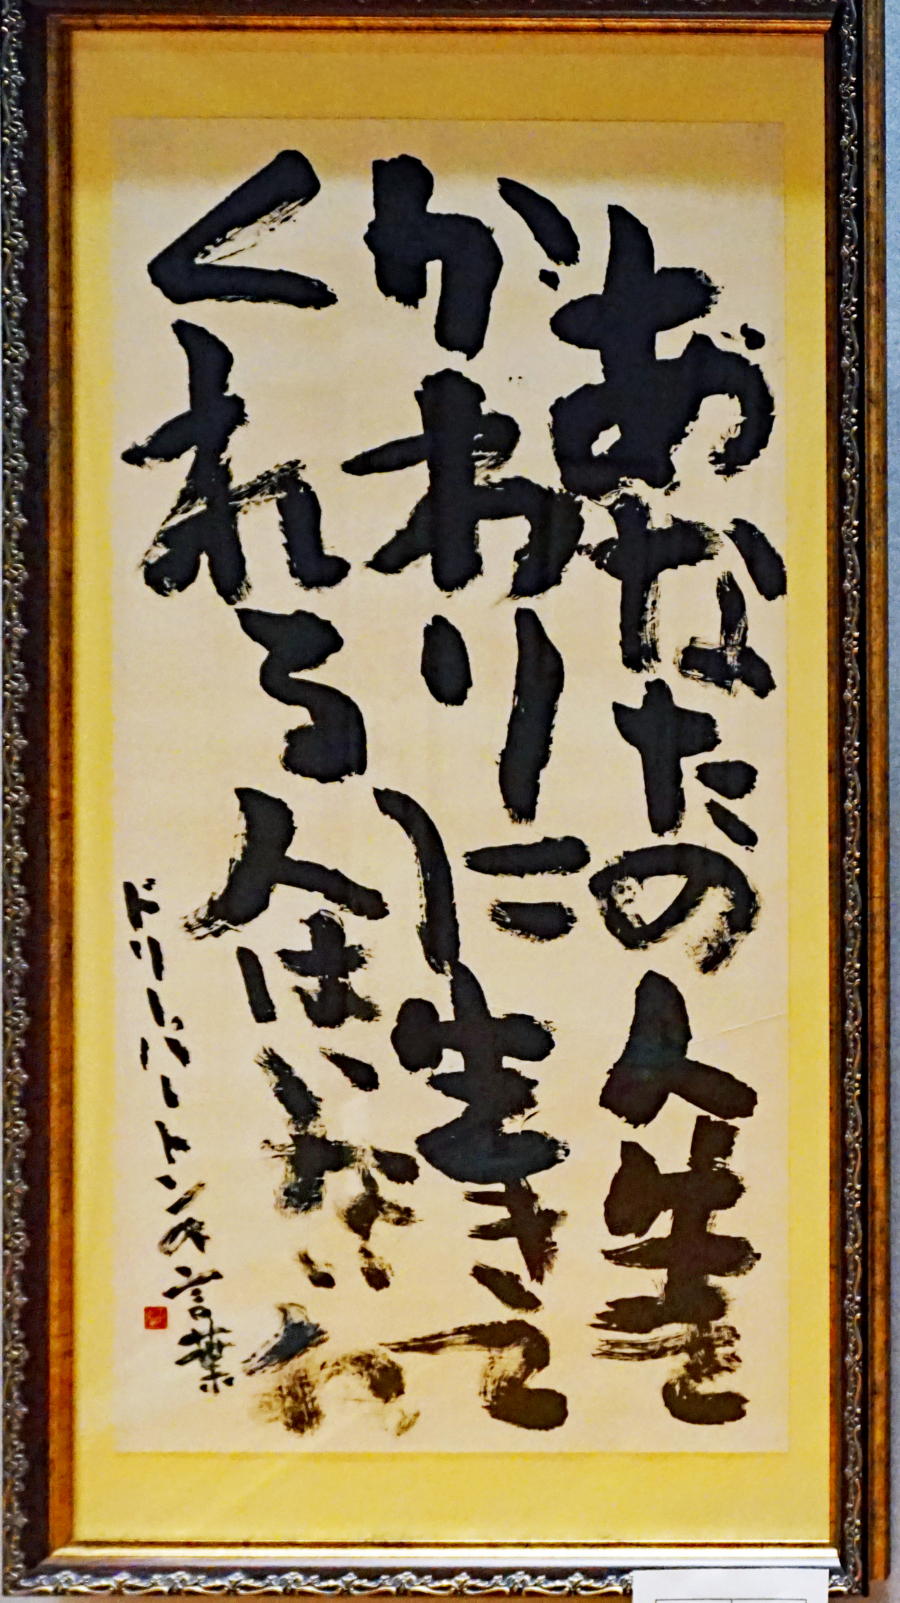 あなたの人生を
かわりに生きて
くれる人はいないわ
ドリーパートンの言葉